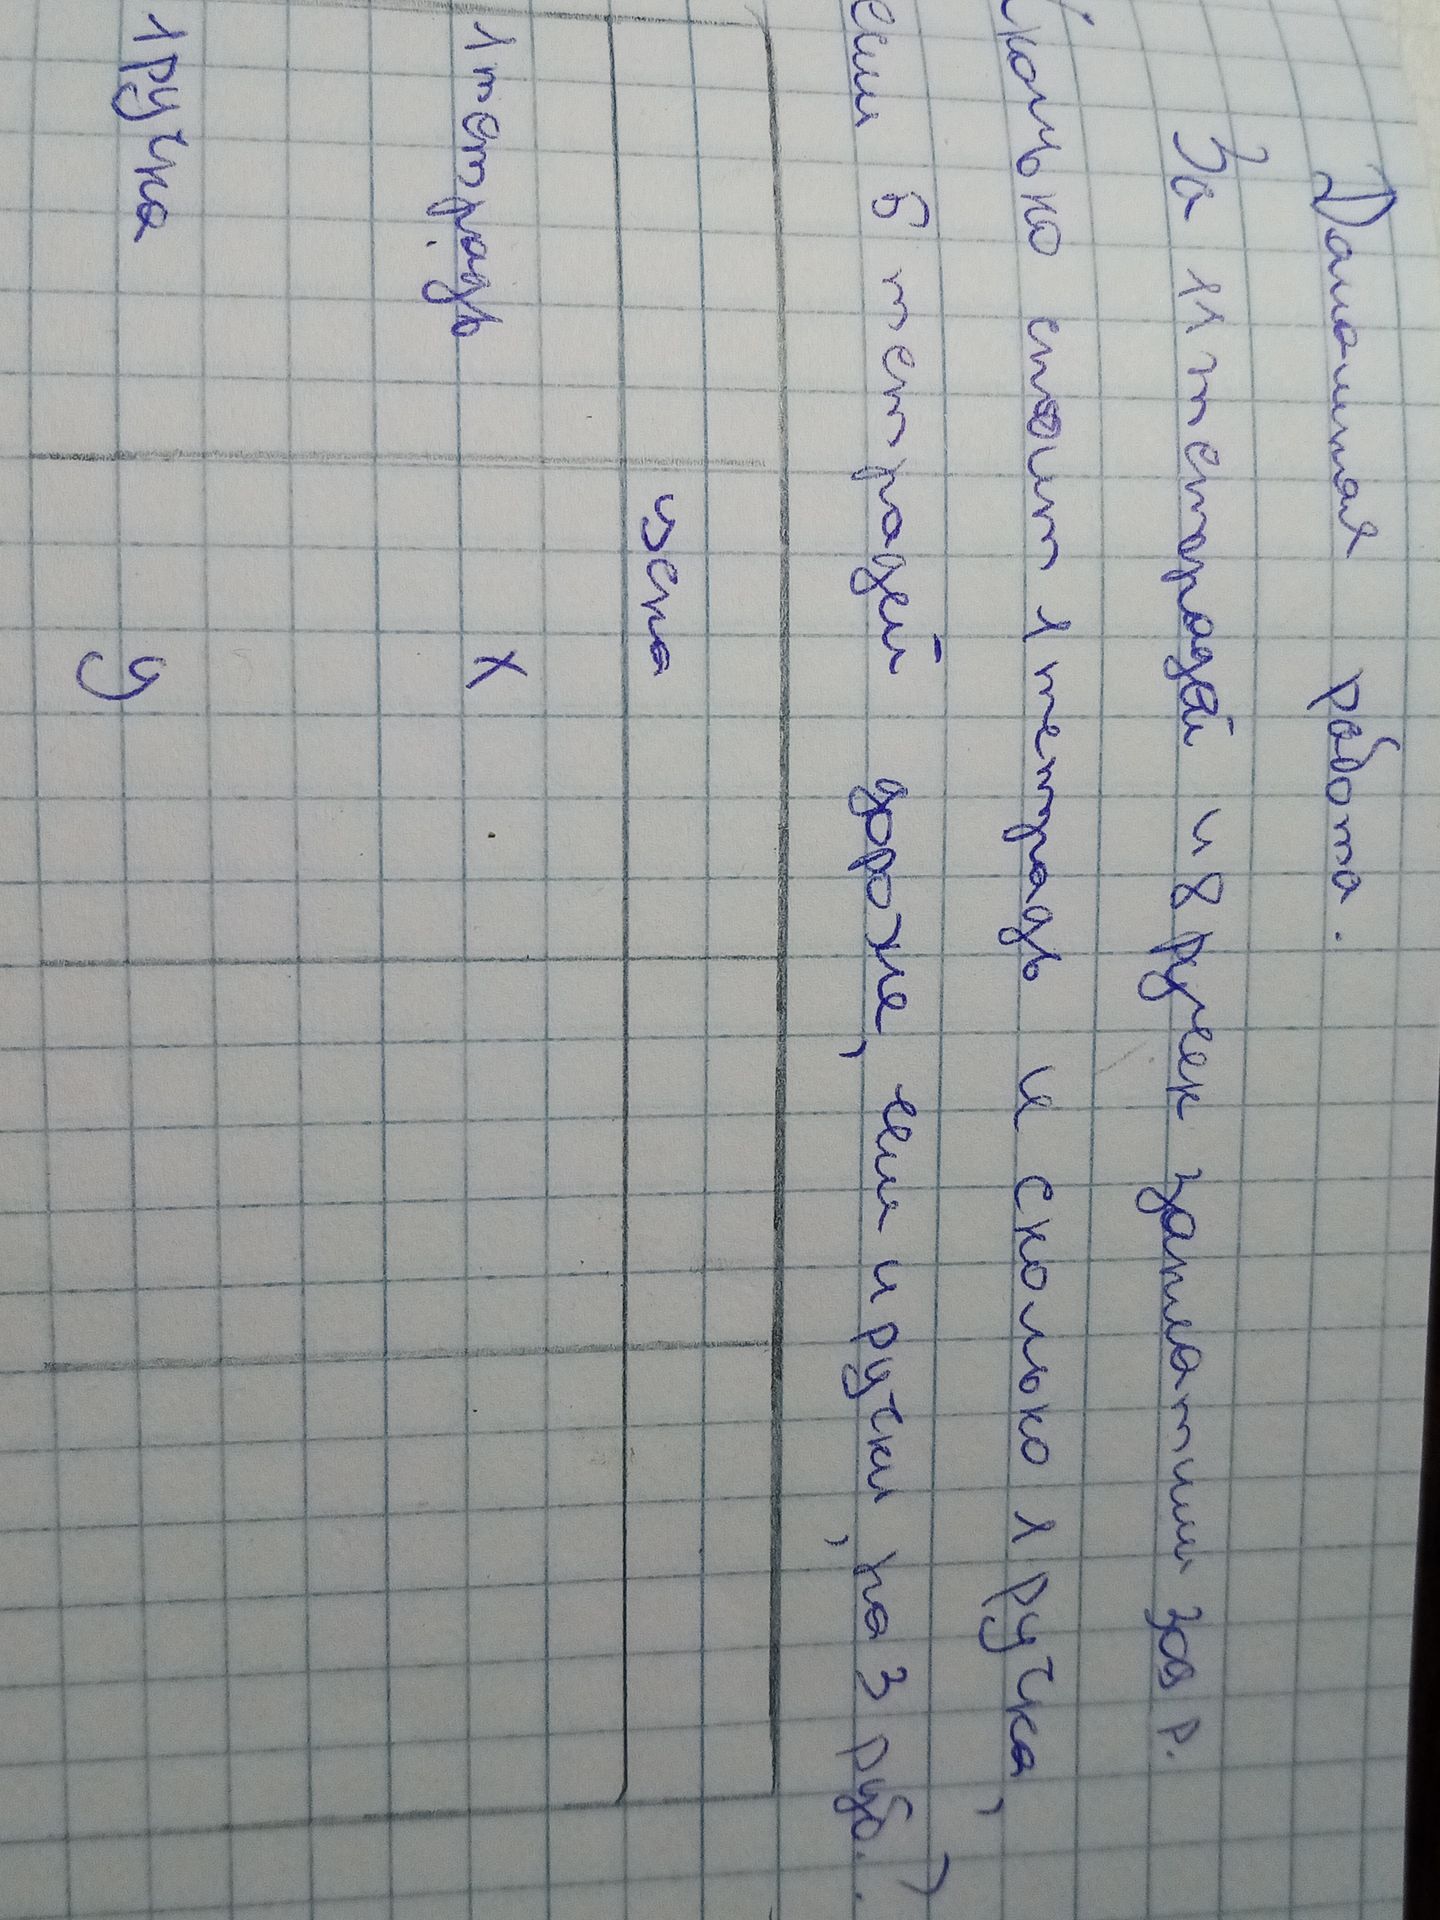 Домашняя работа.
За 11 тетрадей и 8 ручек заплатили р.
Сколько стоит 1 тетрадь и сколько 1 ручка,
если 6 тетрадей дороже, чем 4 ручки, на 3 руб.?
цена
1 тетрадь х
1 ручка у